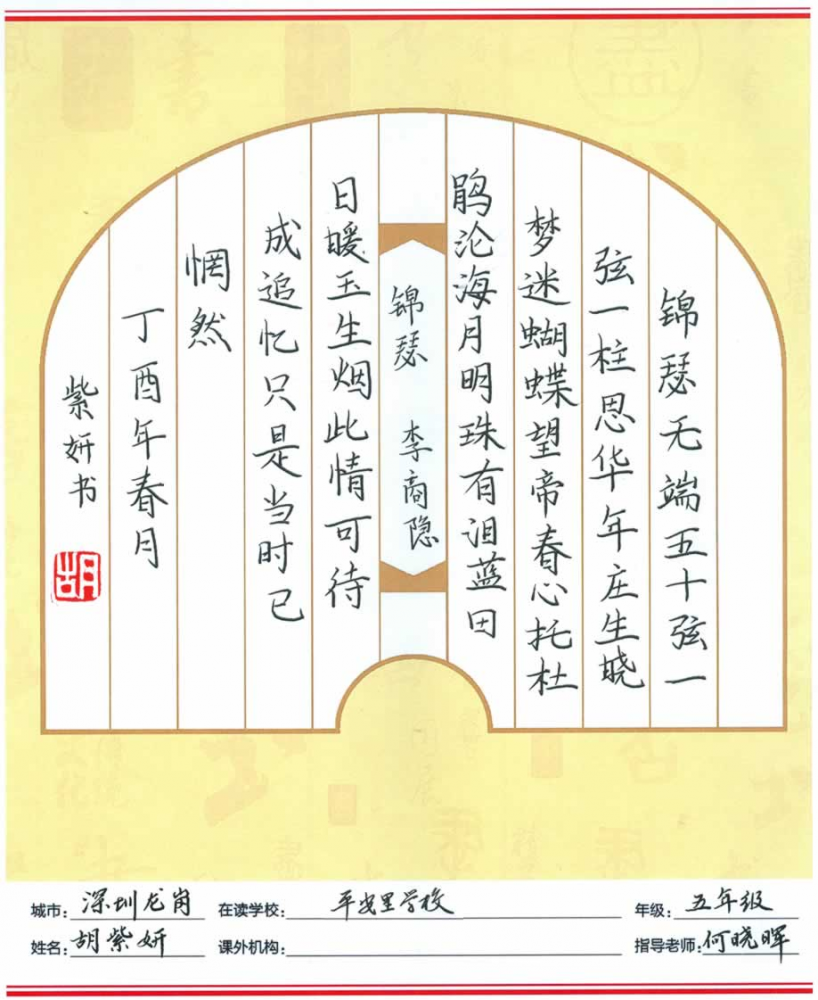 锦瑟无端五十弦一
弦一柱思华年庄生晓
梦迷蝴蝶望帝春心托杜
鹃沧海月明珠有泪蓝田
锦瑟 李商隐
日暖玉生烟此情可待
成追忆只是当时已
惘然
丁酉年春月
紫妍书
胡
城市: 深圳龙岗 在读学校: 平安里学校 年级: 五年级
姓名: 胡紫妍 课外机构: 指导老师: 何晓晖